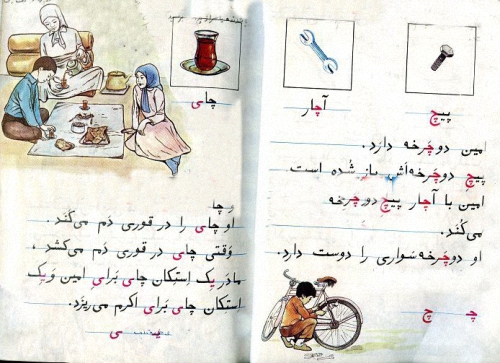 پیچ
آچار
امین دوچرخه دارد.
پیچ دوچرخه‌اش باز شده است
امین با آچار پیچ دوچرخه
می‌کُند.
او دوچرخه‌سواری را دوست دارد.
چـ چ
چای
و چا
او چای را در قوری دَم می‌کُند.
وَقتی چای در قوری دَم می‌کشد،
مادَر یِک اِستکان چای بَرای امین وَ یِک
اِستکان چای بَرای اکرم می‌ریزد.
ـیـ ی